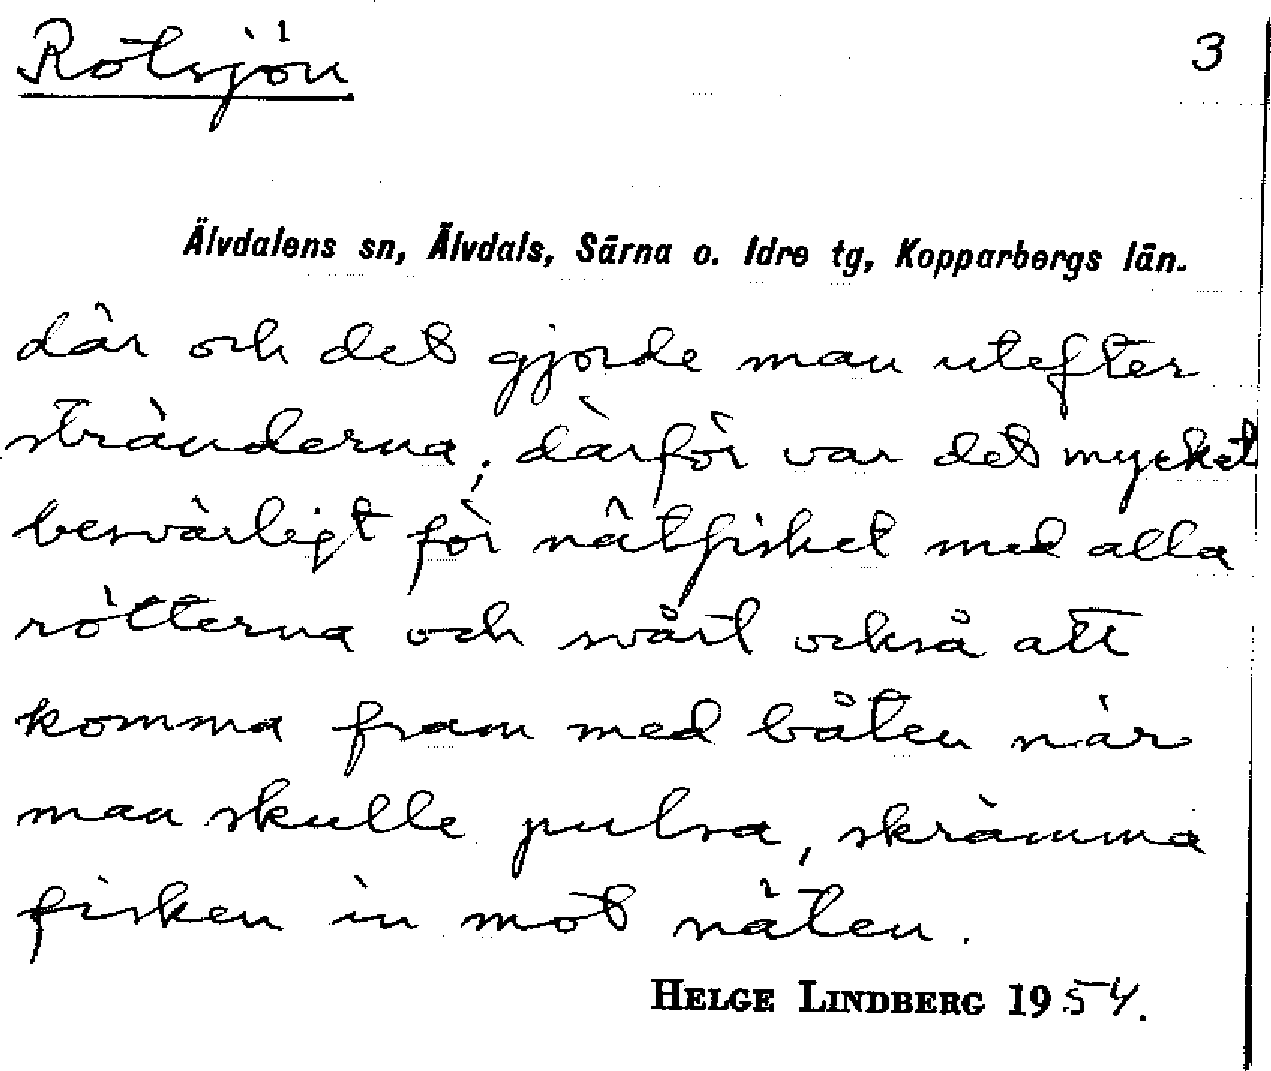 Rötsjön 1 3
Älvdalens sn, Älvdals, Särna o. Idre tg, Kopparbergs län.
där och det gjorde man utefter
stränderna; därför var det mycket
besvärligt för nätfisket med alla
rötterna och svårt också att
komma fram med båten när
man skulle pulsa, skrämma
fisken in mot näten.
HELGE LINDBERG 1954.